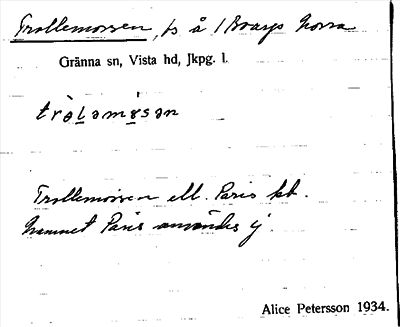 Trollemossen, ts å 1 Boarps Norra
Gränna sn, Vista hd, Jkpg. l.
Trollemossen ell. Paris kt.
Namnet Paris användes ej.
Alice Petersson 1934.